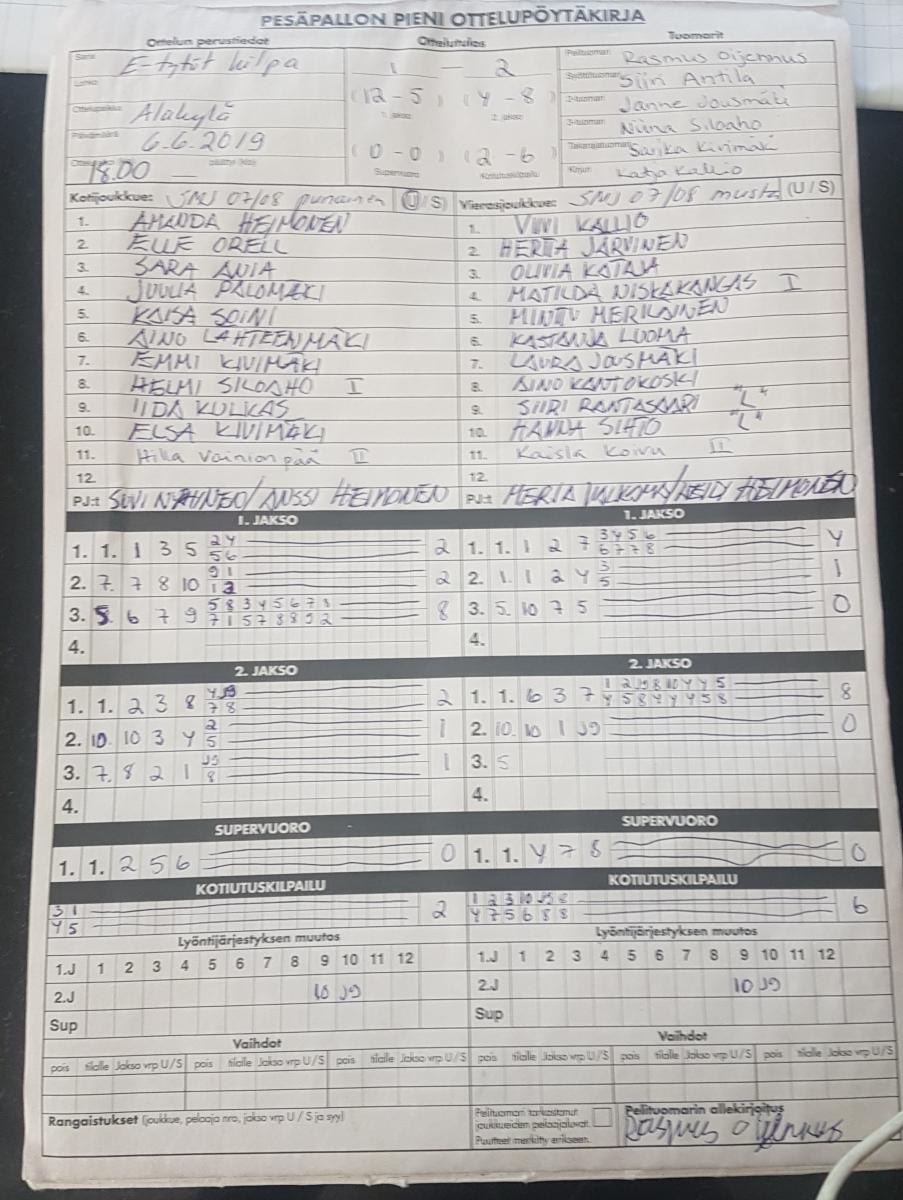 PESÄPALLON PIENI OTTELUPÖYTÄKIRJA
Ottelun perustiedot Ottelutulos Tuomarit
Sarja E-tytöt kilpa 1 — 2 Pelituomari Rasmus Oijennus
Lohko (12 - 5) (4 - 8) Syöttötuomari Siiri Antila
1. jakso 2. jakso
Ottelupaikka Alakylä 2-tuomari Janne Jousmäki
Päivämäärä 6.6.2019 3-tuomari Niina Siloaho
(0 - 0) (2 - 6) Takarajatuomari Sarika Kivimäki
Ottelu alkoi 18.00 — päättyi (klo) Supervuoro Kotiutuskilpailu Kirjuri Katja Kallio
Kotijoukkue: SMJ 07/08 punainen (U/S) Vierasjoukkue: SMJ 07/08 musta (U/S)
1. AMANDA HEIMONEN 1. VIIVI KALLIO
2. ELLE ORELL 2. HERTA JÄRVINEN
3. SARA 3. OLIVIA KATAJA
4. JUULIA PALOMÄKI 4. MATILDA NISKAKANGAS I
5. KAISA SOINI 5. MINTTU MERIKAINEN
6. AINO LÄHTEENMÄKI 6. LUOMA
7. EMMI KIVIMÄKI 7. LAURA JOUSMÄKI
8. HELMI SILOAHO I 8. AINO KANTOKOSKI
9. IIDA KULKAS 9. SIIRI RANTASAARI "L"
10. ELSA KIVIMÄKI 10. HANNA SIHTO "L"
11. Hilla Vainionpää II 11. Kaisla Koivu II
12. 12.
PJ:t SUVI / ANSSI HEIMONEN PJ:t HERTA / HEIDI HEIMONEN
1. JAKSO 1. JAKSO
1. 1. 1 3 5 24 2 1. 1. 1 2 7 3456 4
56 6778
2. 7. 7 8 10 91 2 2. 1. 1 2 4 3 1
12 5
3. 5. 6 7 9 58345673 8 3. 5. 10 7 5 0
71578892
4. 4.
2. JAKSO 2. JAKSO
1. 1. 2 3 8 4 J9 2 1. 1. 6 3 7 1 2 J9 8 10 4 4 5 8
78 4 5 8 4 4 4 5 8
2. 10. 10 3 4 2 1 2. 10. 10 1 J9 0
5
3. 7. 8 2 1 J9 1 3. 5
8
4. 4.
SUPERVUORO SUPERVUORO
1. 1. 2 5 6 0 1. 1. 4 7 8 0
KOTIUTUSKILPAILU KOTIUTUSKILPAILU
3 1 2 1 2 3 10 J9 8 6
4 5 4 7 5 6 8 8
Lyöntijärjestyksen muutos Lyöntijärjestyksen muutos
1.J 1 2 3 4 5 6 7 8 9 10 11 12 1.J 1 2 3 4 5 6 7 8 9 10 11 12
2.J 10 J9 2.J 10 J9
Sup Sup
Vaihdot Vaihdot
pois tilalle Jakso vrp U/S pois tilalle Jakso vrp U/S pois tilalle Jakso vrp U/S pois tilalle Jakso vrp U/S pois tilalle Jakso vrp U/S pois tilalle Jakso vrp U/S
Rangaistukset (joukkue, pelaaja nro, jakso vrp U / S ja syy) Pelituomari tarkastanut Pelituomarin allekirjoitus
joukkueiden pelaajaluvat.
Puutteet merkitty erikseen. Rasmus Oijennus